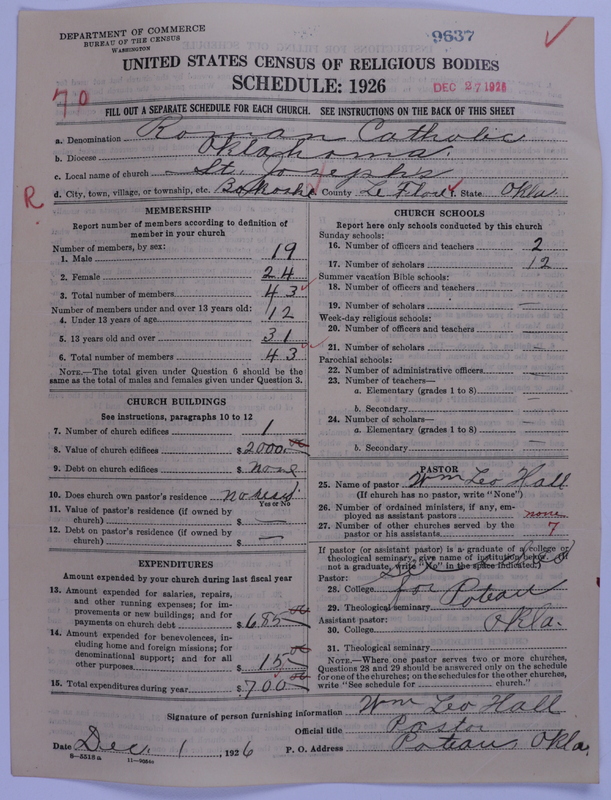 DEPARTMENT OF COMMERCE
BUREAU OF THE CENSUS
WASHINGTON
9637
UNITED STATES CENSUS OF RELIGIOUS BODIES
SCHEDULE: 1926
DEC 27 1926
70
FILL OUT A SEPARATE SCHEDULE FOR EACH CHURCH. SEE INSTRUCTIONS ON THE BACK OF THIS SHEET
a. Denomination Roman Catholic
b. Diocese Oklahoma.
c. Local name of church St. Joseph's
R
d. City, town, village, or township, etc. Bokoshe County Le Flore f. State Okla.
MEMBERSHIP
Report number of members according to definition of
member in your church
Number of members, by sex:
1. Male 19
2. Female 24
3. Total number of members 43
Number of members under and over 13 years old:
4. Under 13 years of age 12
5. 13 years old and over 31
6. Total number of members 43
NOTE.—The total given under Question 6 should be
same as the total of males and females given under Question 3.
CHURCH BUILDINGS
See instructions, paragraphs 10 to 12
7. Number of church edifices 1
8. Value of church edifices $2000.00
9. Debt on church edifices $none
10. Does church own pastor's residence no
Yes or No
11. Value of pastor's residence (if owned by
church) $ —
12. Debt on pastor's residence (if owned by
church) $ —
EXPENDITURES
Amount expended by your church during last fiscal year
13. Amount expended for salaries, repairs,
and other running expenses; for im-
provements or new buildings; and for
payments on church debt $685.00
14. Amount expended for benevolences, in-
cluding home and foreign missions; for
denominational support; and for all
other purposes $15.00
15. Total expenditures during year $700.00
CHURCH SCHOOLS
Report here only schools conducted by this church
Sunday schools:
16. Number of officers and teachers 2
17. Number of scholars 12
Summer vacation Bible schools:
18. Number of officers and teachers —
19. Number of scholars —
Week-day religious schools:
20. Number of officers and teachers —
21. Number of scholars —
Parochial schools:
22. Number of administrative officers —
23. Number of teachers—
a. Elementary (grades 1 to 8) —
b. Secondary —
24. Number of scholars—
a. Elementary (grades 1 to 8) —
b. Secondary —
PASTOR
25. Name of pastor Wm Leo Hall
(If church has no pastor, write "None")
26. Number of ordained ministers, if any, em-
ployed as assistant pastors none
27. Number of other churches served by the
pastor or his assistants 7
If pastor (or assistant pastor) is a graduate of a college or
theological seminary, give name of institution below (if
not a graduate, write "No" in the space indicated.)
Pastor:
28. College for
29. Theological seminary Poteau
Assistant pastor: Okla.
30. College
31. Theological seminary
NOTE.—Where one pastor serves two or more churches,
Questions 28 and 29 should be answered only on the schedule
for one of the churches; on the schedules for the other churches,
write "See schedule for church."
Signature of person furnishing information Wm Leo Hall
Official title Pastor
Date Dec. 1, 1926 P. O. Address Poteau Okla.
8—5518a 11—9084